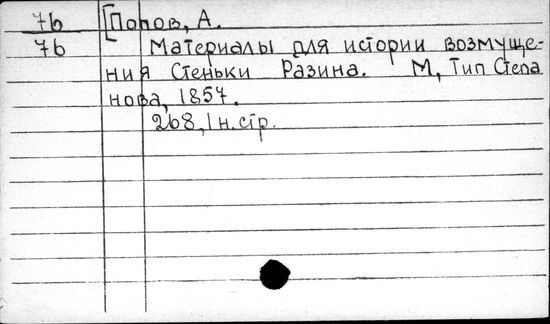 7б [Попов, А.
7б Материалы для истории возмуще-
ния Стеньки Разина. М, Тип Степа
нова, 1857.
268, 1 н. стр.